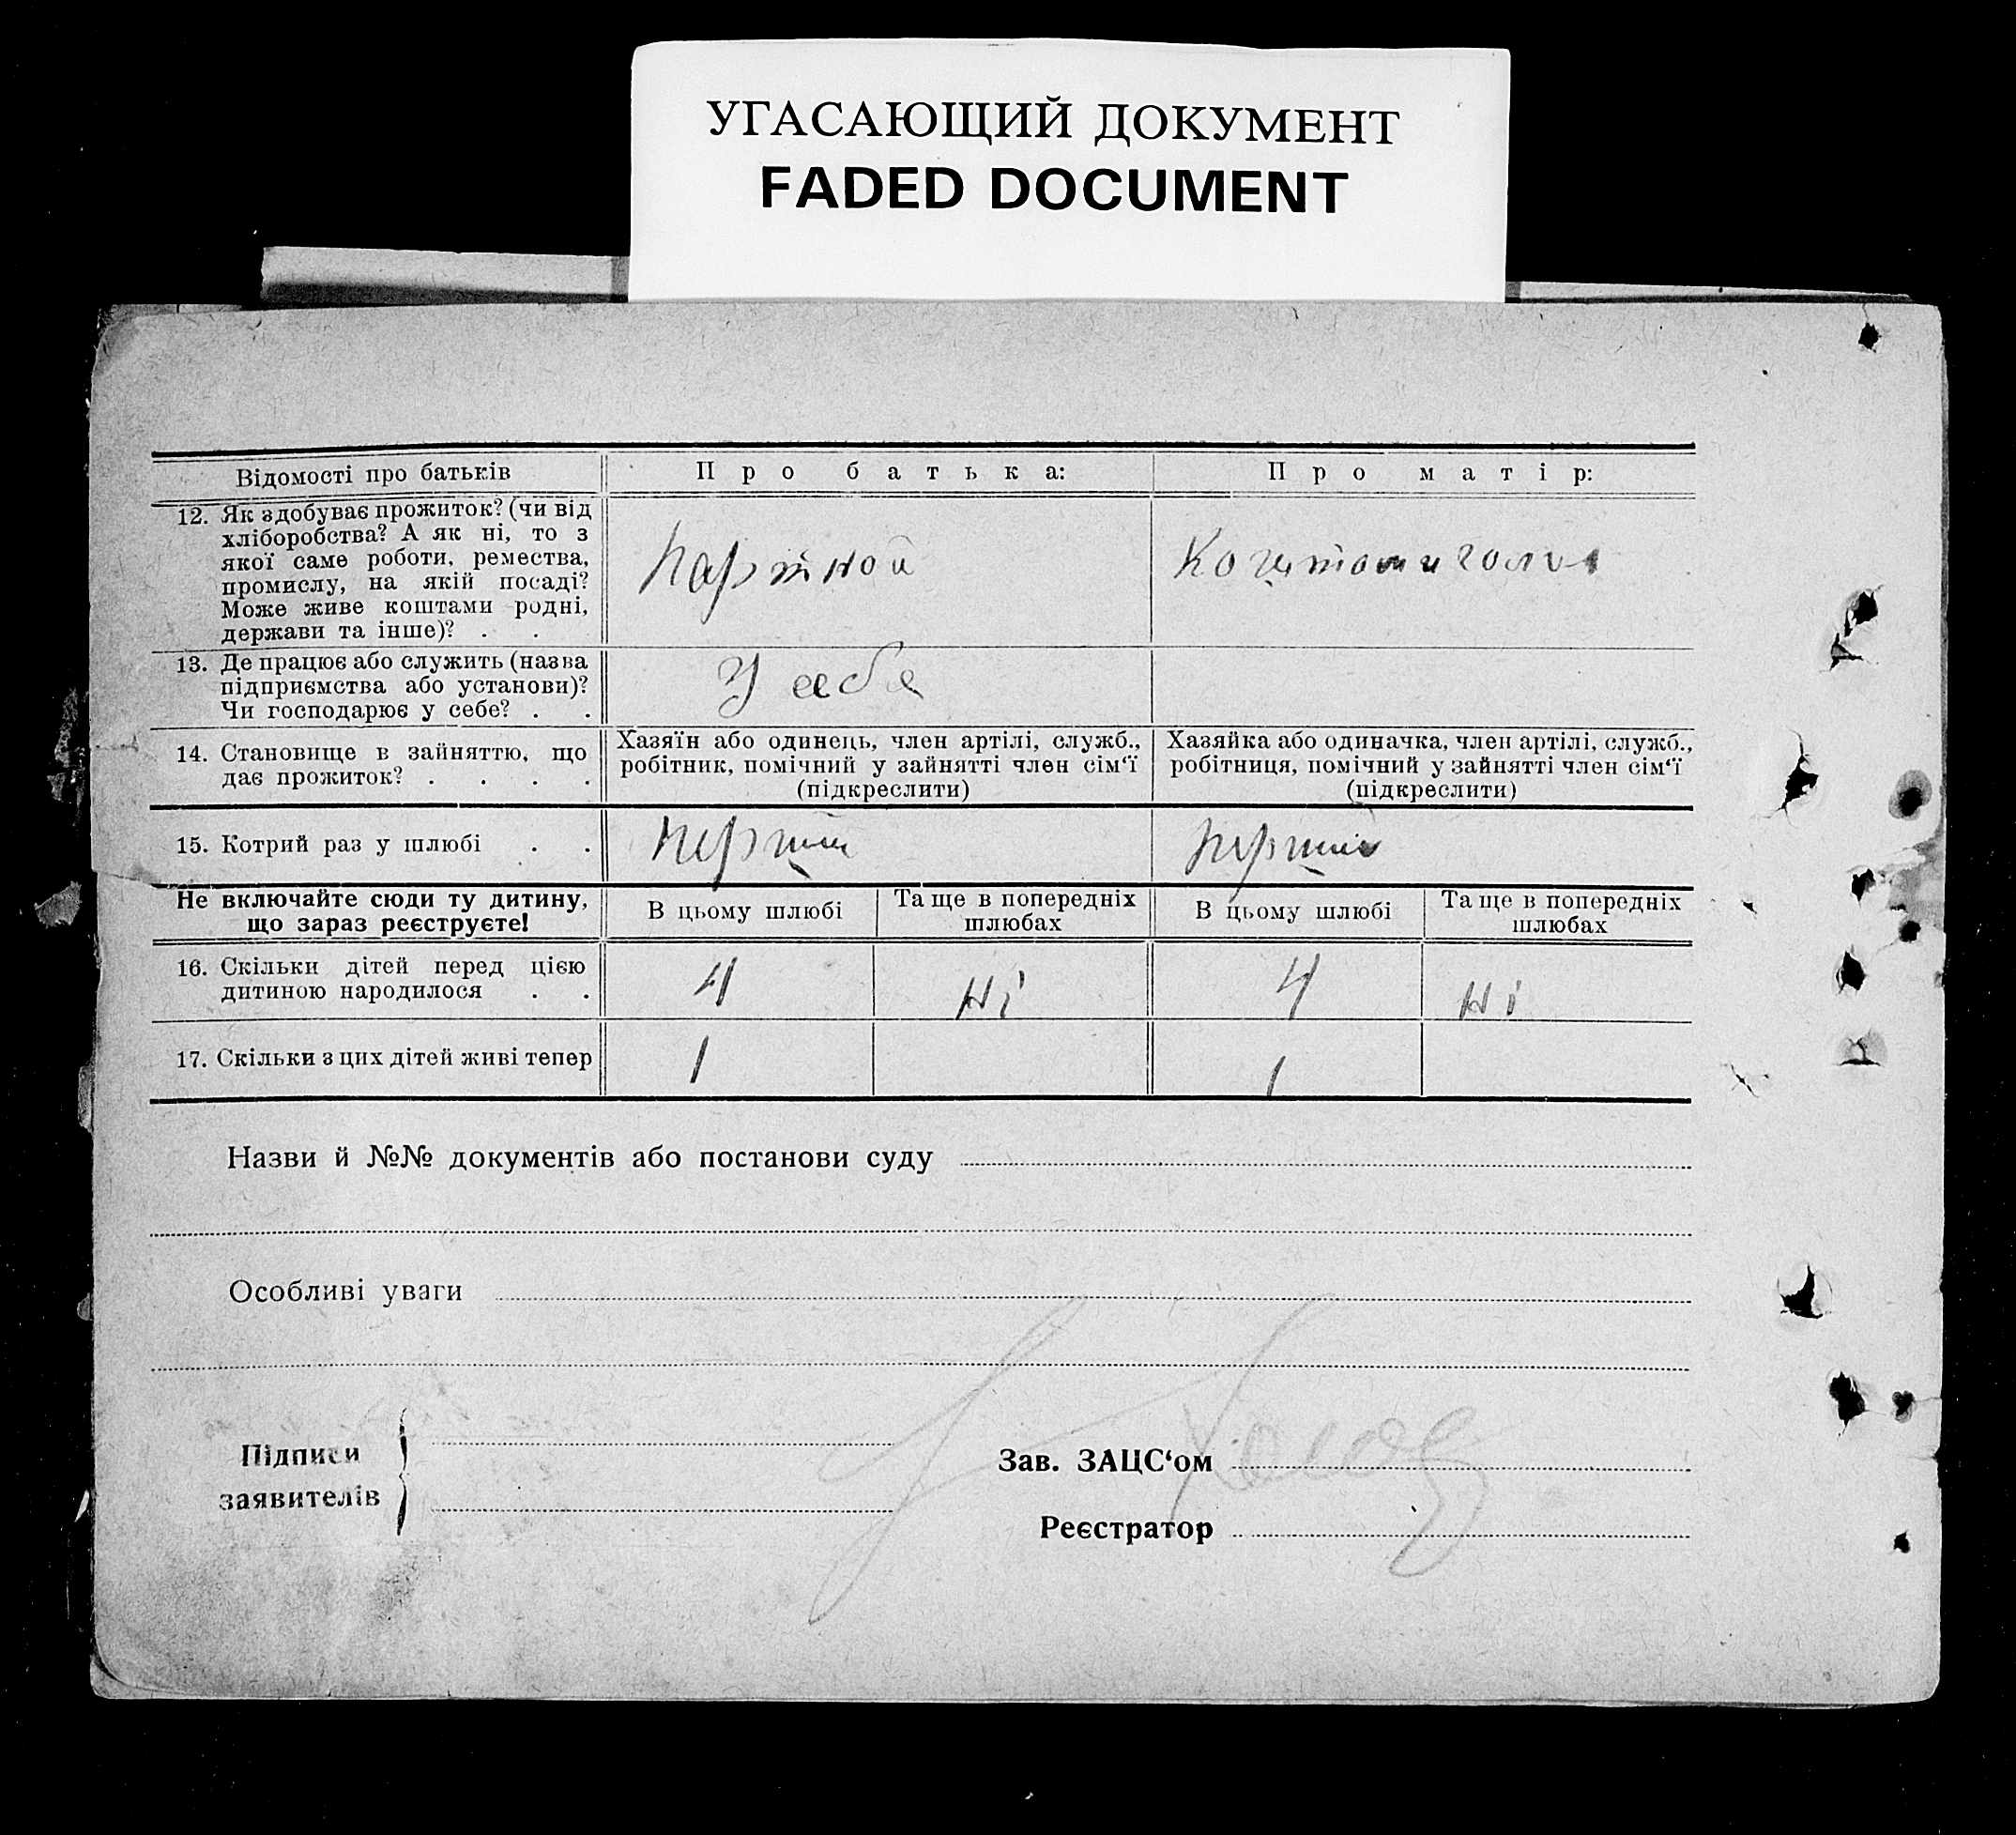 УГАСАЮЩИЙ ДОКУМЕНТ
FADED DOCUMENT
Відомості про батьків
Про батька:
Про матір:
12. Як здобуває прожиток? (чи від
хліборобства? А як ні, то з
якої саме роботи, ремества,
промислу, на якій посаді?
Може живе коштами родні,
держави та інше)? . .
Портной
Коштом
13. Де працює або служить (назва
підприємства або установи)?
Чи господарює у себе? . .
У себе
14. Становище в зайняттю, що
дає прожиток? . . . .
Хазяїн або одинець, член артілі, служб.,
робітник, помічний у зайнятті член сім‘ї
(підкреслити)
Хазяйка або одиначка, член артілі, служб.,
робітниця, помічний у зайнятті член сім‘ї
(підкреслити)
15. Котрий раз у шлюбі . .
перший
перший
Не включайте сюди ту дитину,
що зараз реєструєте!
В цьому шлюбі
Та ще в попередніх
шлюбах
В цьому шлюбі
Та ще в попередніх
шлюбах
16. Скільки дітей перед цією
дитиною народилося . .
4
Ні
4
Ні
17. Скільки з цих дітей живі тепер
1
1
Назви й №№ документів або постанови суду
Особливі уваги
Підписи
заявителів
Зав. ЗАЦС‘ом
Реєстратор